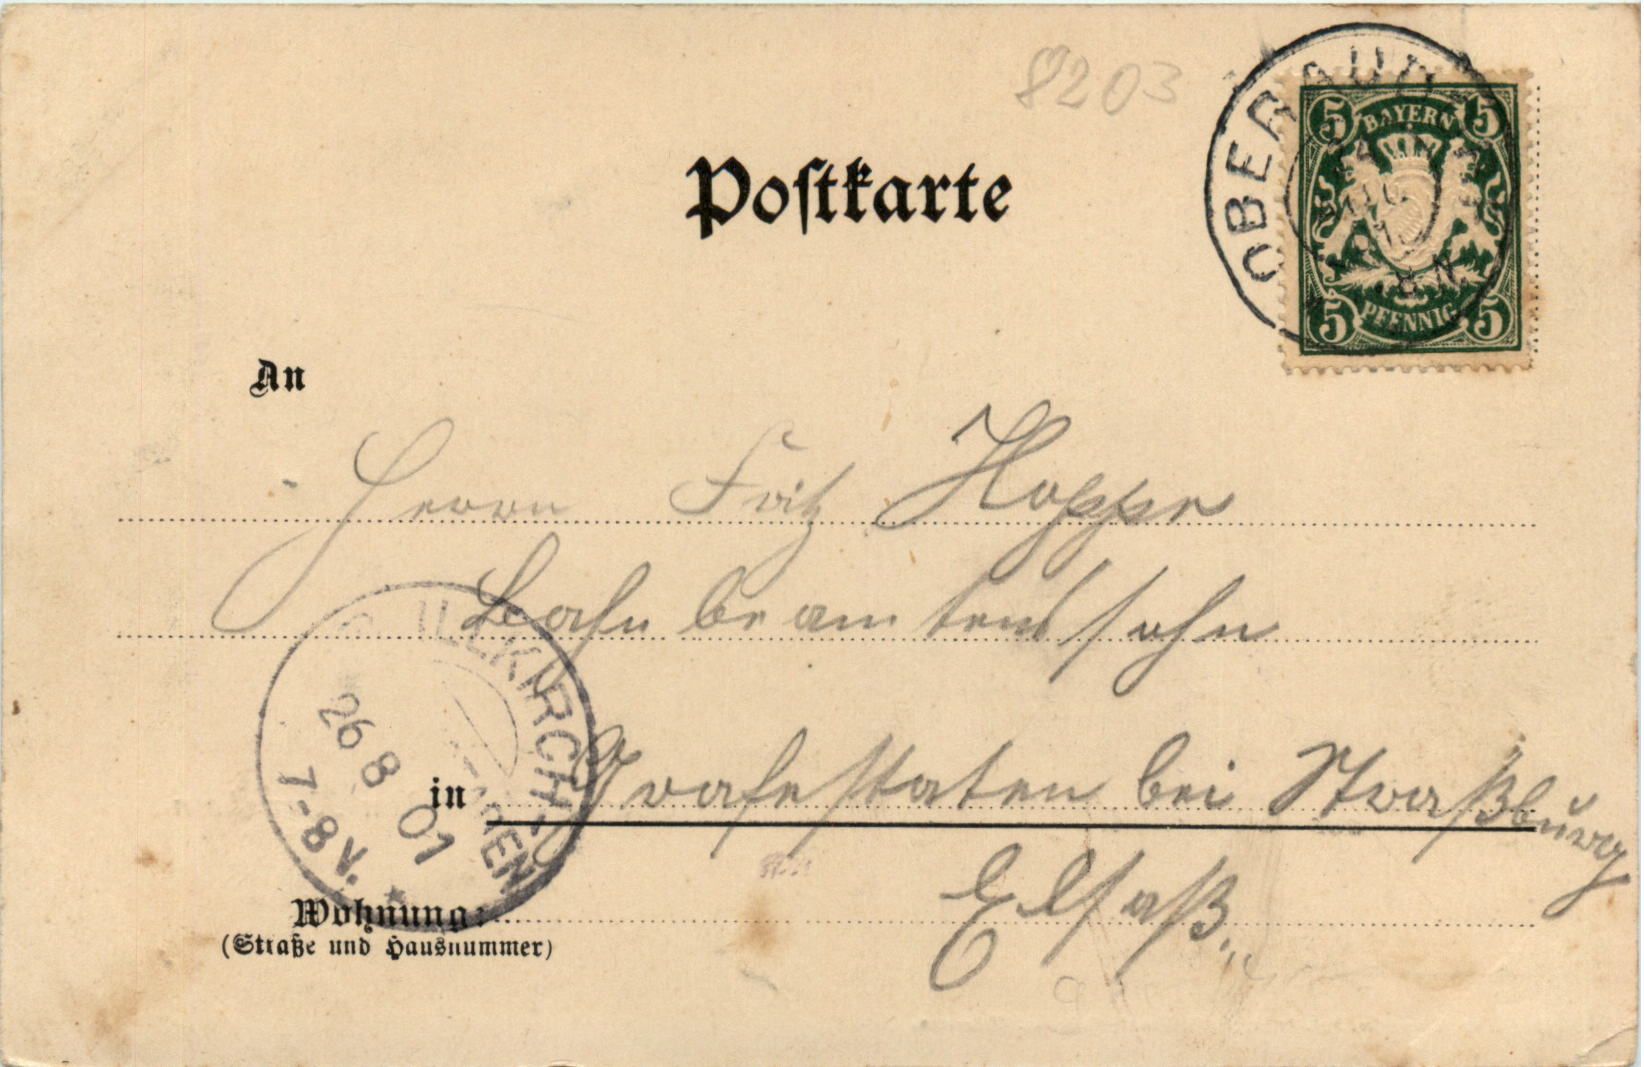 8203
OBERAUDORF
AUG.
8 N.
5 BAYERN 5
5 PFENNIG 5
Postkarte
An
Herrn Fritz Hoppe
Bahnbeamtensohn
in Grafenstaten bei Straßburg
Elsaß.
ILLKIRCH-G
ADEN
26 8 01
7-8V.
Wohnung:
(Straße und Hausnummer)